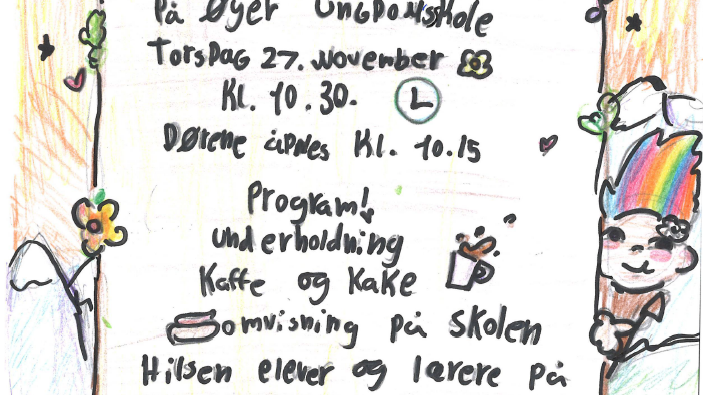 På Øyer Ungdomsskole
Torsdag 27. november
Kl. 10.30.
Dørene åpnes Kl. 10.15
Program!
underholdning
Kaffe og Kake
omvisning på skolen
Hilsen elever og lærere på